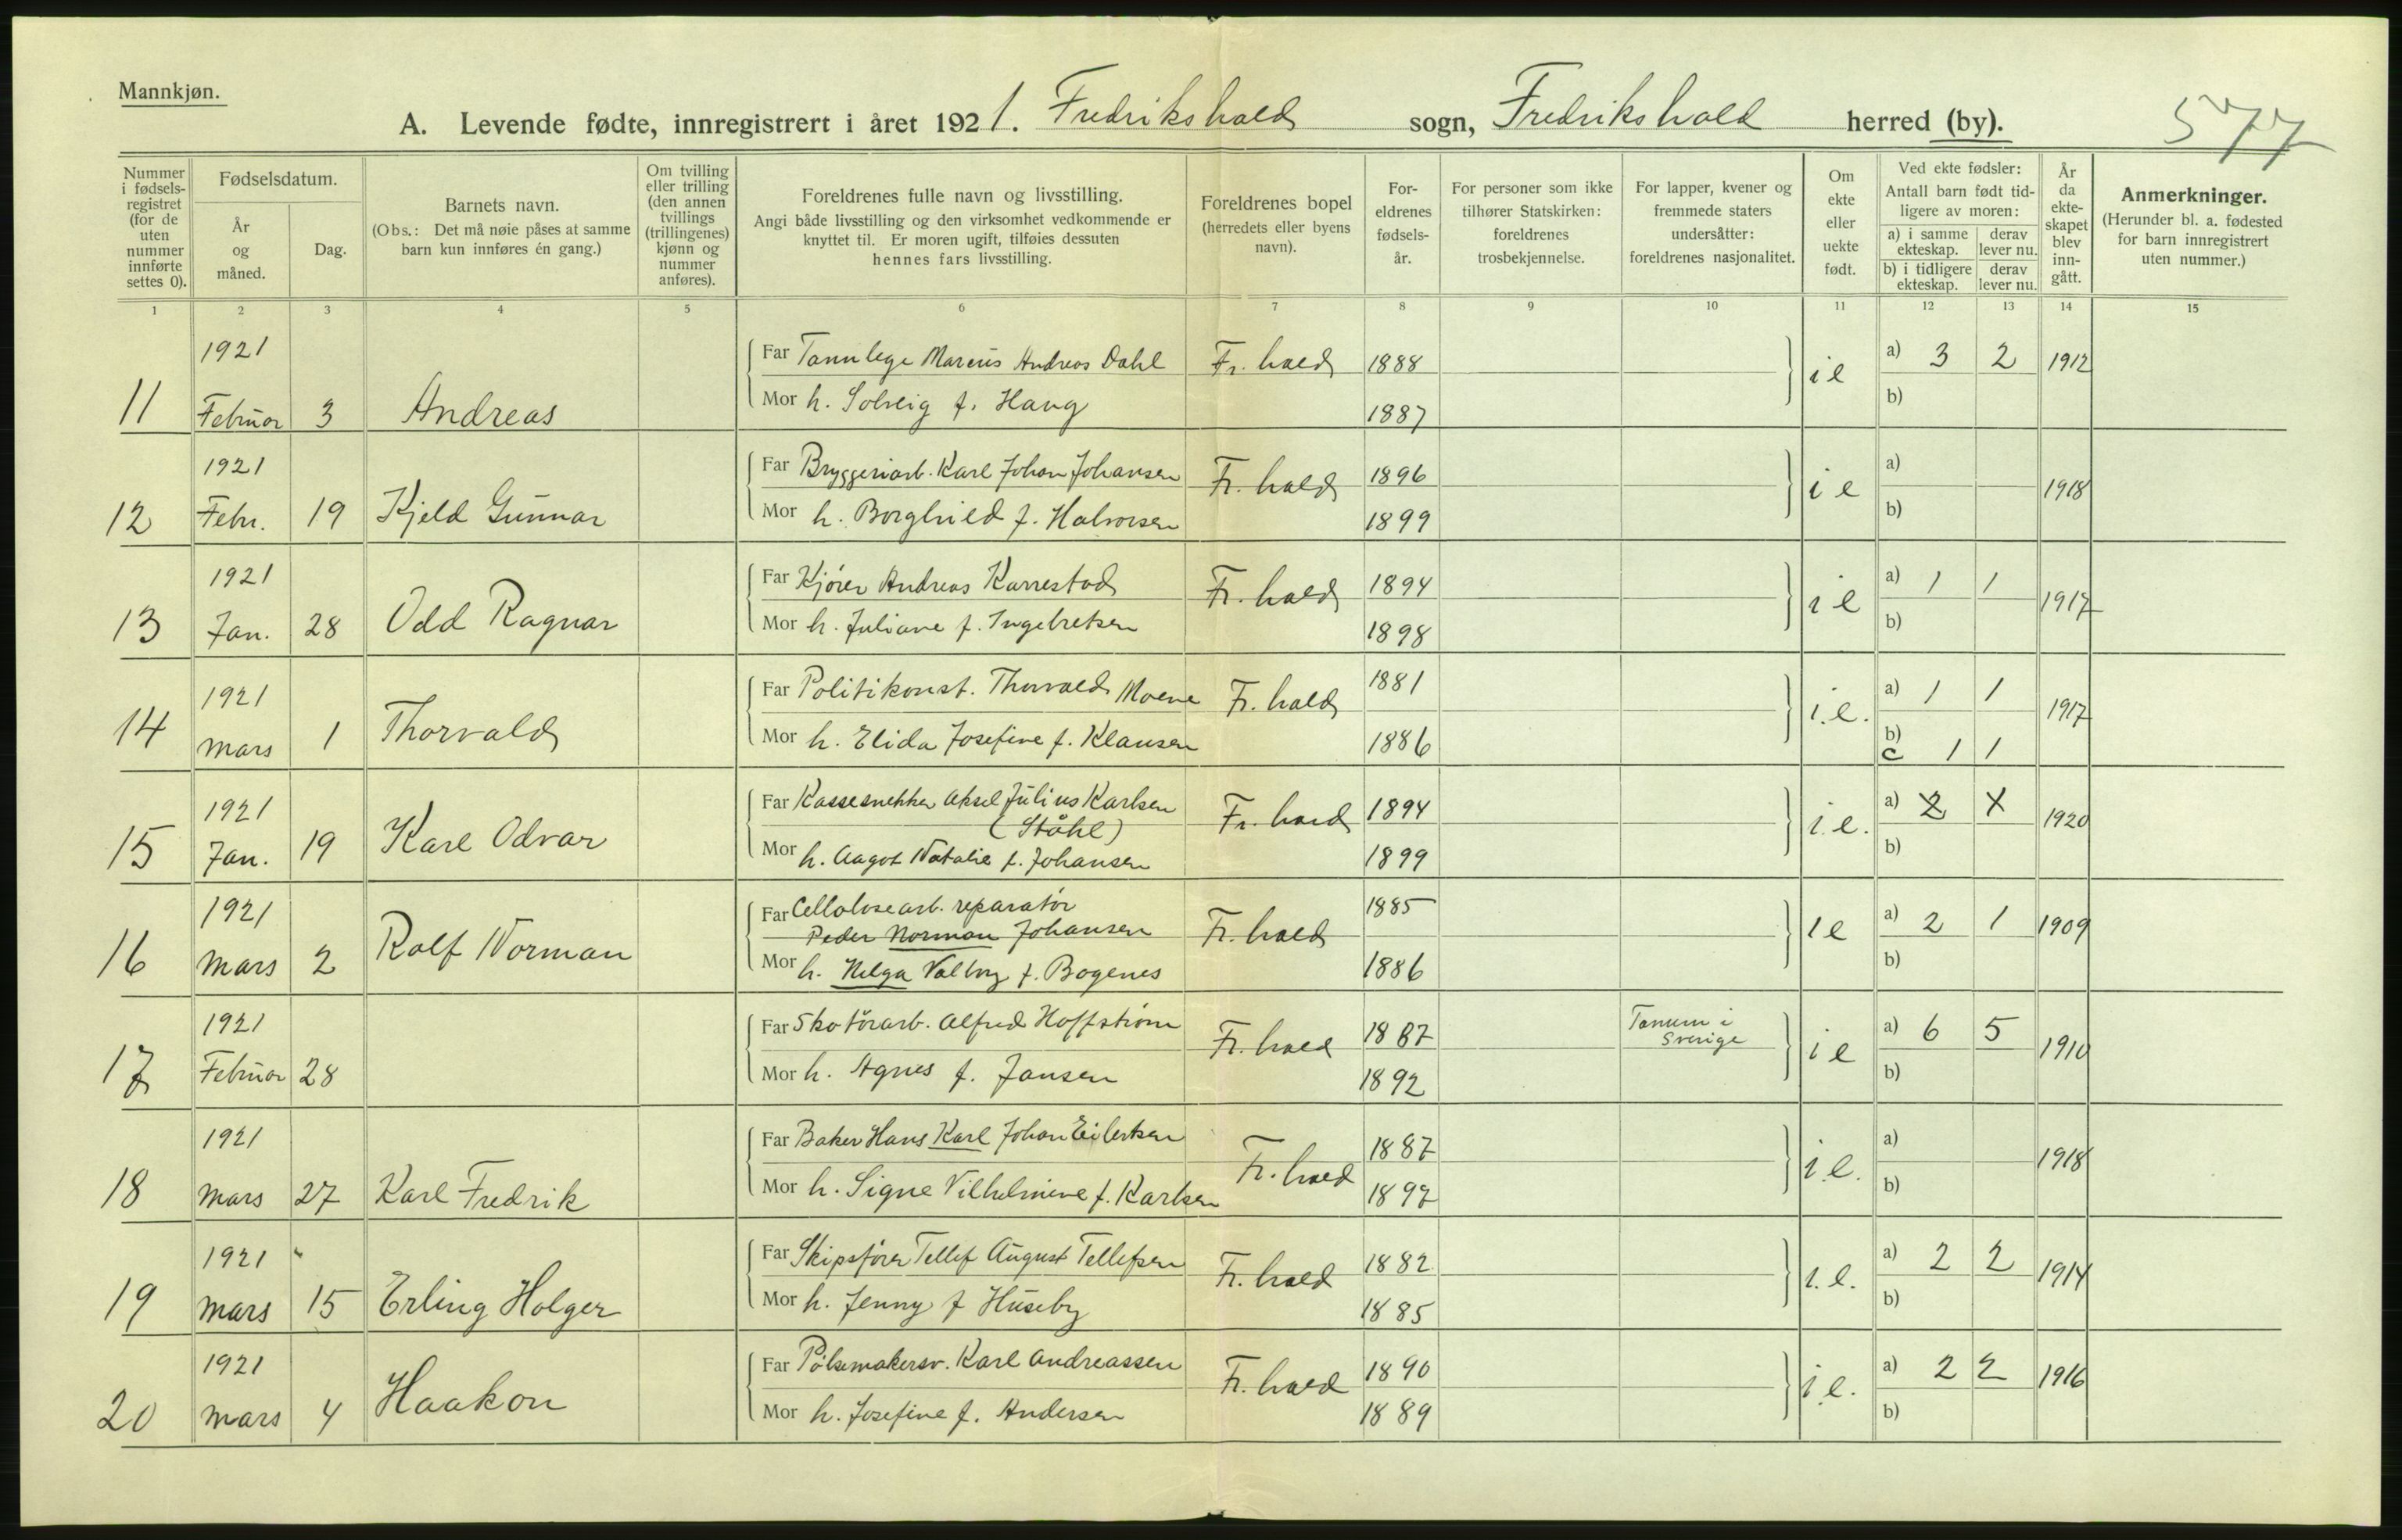 Mannkjøn.
A. Levende fødte, innregistrert i året 1921. Fredrikshald sogn, Fredrikshald herred (by).
577
Nummer i fødsels-registret (for de uten nummer innførte settes 0).
Fødselsdatum.
År og måned.
Dag.
Barnets navn.
(Obs.: Det må nøie påses at samme barn kun innføres én gang.)
Om tvilling eller trilling (den annen tvillings (trillingenes) kjønn og nummer anføres).
Foreldrenes fulle navn og livsstilling.
Angi både livsstilling og den virksomhet vedkommende er knyttet til. Er moren ugift, tilføies dessuten hennes fars livsstilling.
Foreldrenes bopel (herredets eller byens navn).
For-eldrenes fødsels-år.
For personer som ikke tilhører Statskirken: foreldrenes trosbekjennelse.
For lapper, kvener og fremmede staters undersåtter: foreldrenes nasjonalitet.
Om ekte eller uekte født.
Ved ekte fødsler: Antall barn født tid-ligere av moren:
a) i samme ekteskap. derav lever nu.
b) i tidligere ekteskap. derav lever nu.
År da ekte-skapet blev inn-gått.
Anmerkninger.
(Herunder bl. a. fødested for barn innregistrert uten nummer.)
1 2 3 4 5 6 7 8 9 10 11 12 13 14 15
1921
Far Tannlege Marcus Andreas Dahl Fr. hald 1888 i e a) 3 2 1912
11 Februar 3 Andreas
Mor h. Solveig f. Haug 1887 b)
1921
Far Bryggeriarb. Karl Johan Johansen Fr. hald 1896 i e a) 1918
12 Febr. 19 Kjeld Gunnar
Mor h. Borghild f. Halvorsen 1899 b)
1921
Far Kjører Andreas Karrestad Fr. hald 1894 i e a) 1 1 1917
13 Jan. 28 Odd Ragnar
Mor h. Juliane f. Ingebretsen 1898 b)
1921
Far Politikonst. Thorvald Moene Fr. hald 1881 i.e. a) 1 1 1917
14 Mars 1 Thorvald
Mor h. Elida Josefine f. Klausen 1886 b) c 1 1
1921
Far Kassesnekker Aksel Julius Karlsen Fr. hald 1894 i.e. a) 2 X 1920
(Ståhl)
15 Jan. 19 Karl Odvar
Mor h. Aagot Natalie f. Johansen 1899 b)
1921
Far Cellolosearb. reparatør 1885
Peder Norman Johansen Fr. hald i e a) 2 1 1909
16 Mars 2 Rolf Norman
Mor h. Helga Valborg f. Bogenes 1886 b)
1921
Far Skotörarb. Alfred Hoffstrøm Fr. hald 1887 Tanum i Sverige i e a) 6 5 1910
17 Februar 28
Mor h. Agnes f. Jansen 1892 b)
1921
Far Baker Hans Karl Johan Eilertsen Fr. hald 1887 i.e. a) 1918
18 Mars 27 Karl Fredrik
Mor h. Signe Vilhelmine f. Karlsen 1897 b)
1921
Far Skipsfører Tellef August Tellefsen Fr. hald 1882 i.e. a) 2 2 1914
19 Mars 15 Erling Holger
Mor h. Jenny f Huseby 1885 b)
1921
Far Pølsemakersv. Karl Andreassen Fr. hald 1890 i e. a) 2 2 1916
20 Mars 4 Haakon
Mor h. Josefine f. Andersen 1889 b)